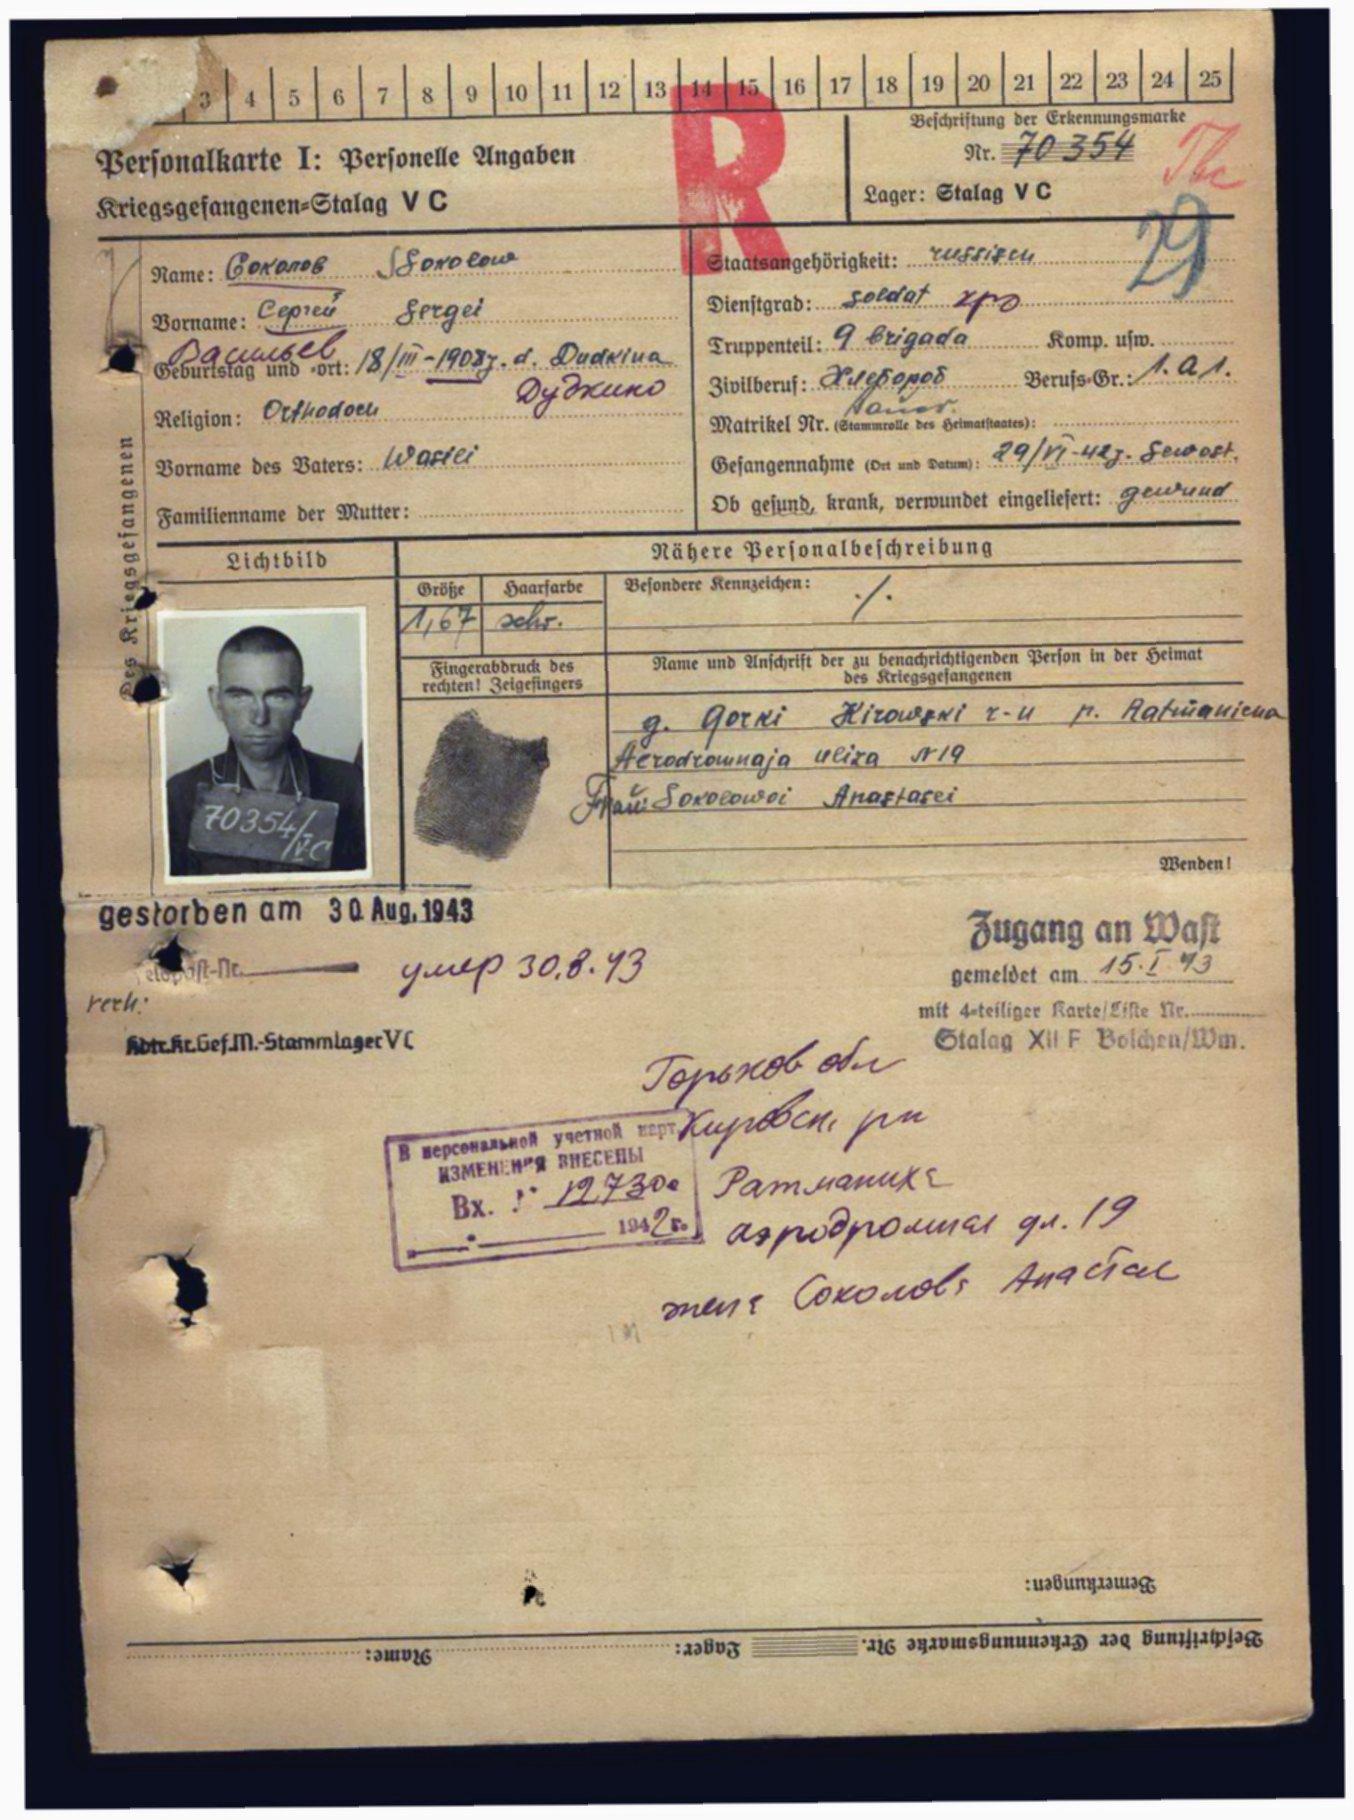 3 4 5 6 7 8 9 10 11 12 13 14 15 16 17 18 19 20 21 22 23 24 25
R
Beschriftung der Erkennungsmarke
Personalkarte I: Personelle Angaben
Nr. 70354
Tbc
Kriegsgefangenen=Stalag V C
Lager: Stalag V C
29
Des Kriegsgefangenen
Name: Соколов Sokolow
Vorname: Сергей Sergei
Васильев
Geburtstag und -ort: 18/III-1908g. d. Dudkina
Дудкино
Religion: Orthodox
Vorname des Vaters: Wasili
Familienname der Mutter:
Staatsangehörigkeit: russisch
Dienstgrad: Soldat
Truppenteil: 9 brigada Komp. usw.
Zivilberuf: Хлебороб Berufs=Gr.: 1.a1.
Bauer.
Matrikel Nr. (Stammrolle des Heimatstaates):
Gefangennahme (Ort und Datum): 29/VI-42g. Sewost.
Ob gesund, krank, verwundet eingeliefert: gesund
Lichtbild
Nähere Personalbeschreibung
Größe Haarfarbe Besondere Kennzeichen: ./.
1,67 schw.
Fingerabdruck des
rechten! Zeigefingers
Name und Anschrift der zu benachrichtigenden Person in der Heimat
des Kriegsgefangenen
g. Gorki Kirowski r-n p. Ratmanicha
Aerodromnaja uliza N19
Frau: Sokolowoi Anastasei
70354/VC
Wenden!
gestorben am 30. Aug. 1943
Feldpost-Nr.
умер 30.8.43
Kdtr.Kr.Gef.M.-Stammlager V C
Zugang an Wast
gemeldet am 15.I.43
mit 4=teiliger Karte/Liste Nr.
Stalag XII F Bolchen/Wm.
Горьков обл
Кировск. рн
Ратманиха
аэродромная ул. 19
жена Соколова Анастас
В персональной учетной карт.
ИЗМЕНЕНИЯ ВНЕСЕНЫ
Вх. № 12730с
1942 г.
Bemerkungen:
Beschriftung der Erkennungsmarke Nr. Lager: Name: